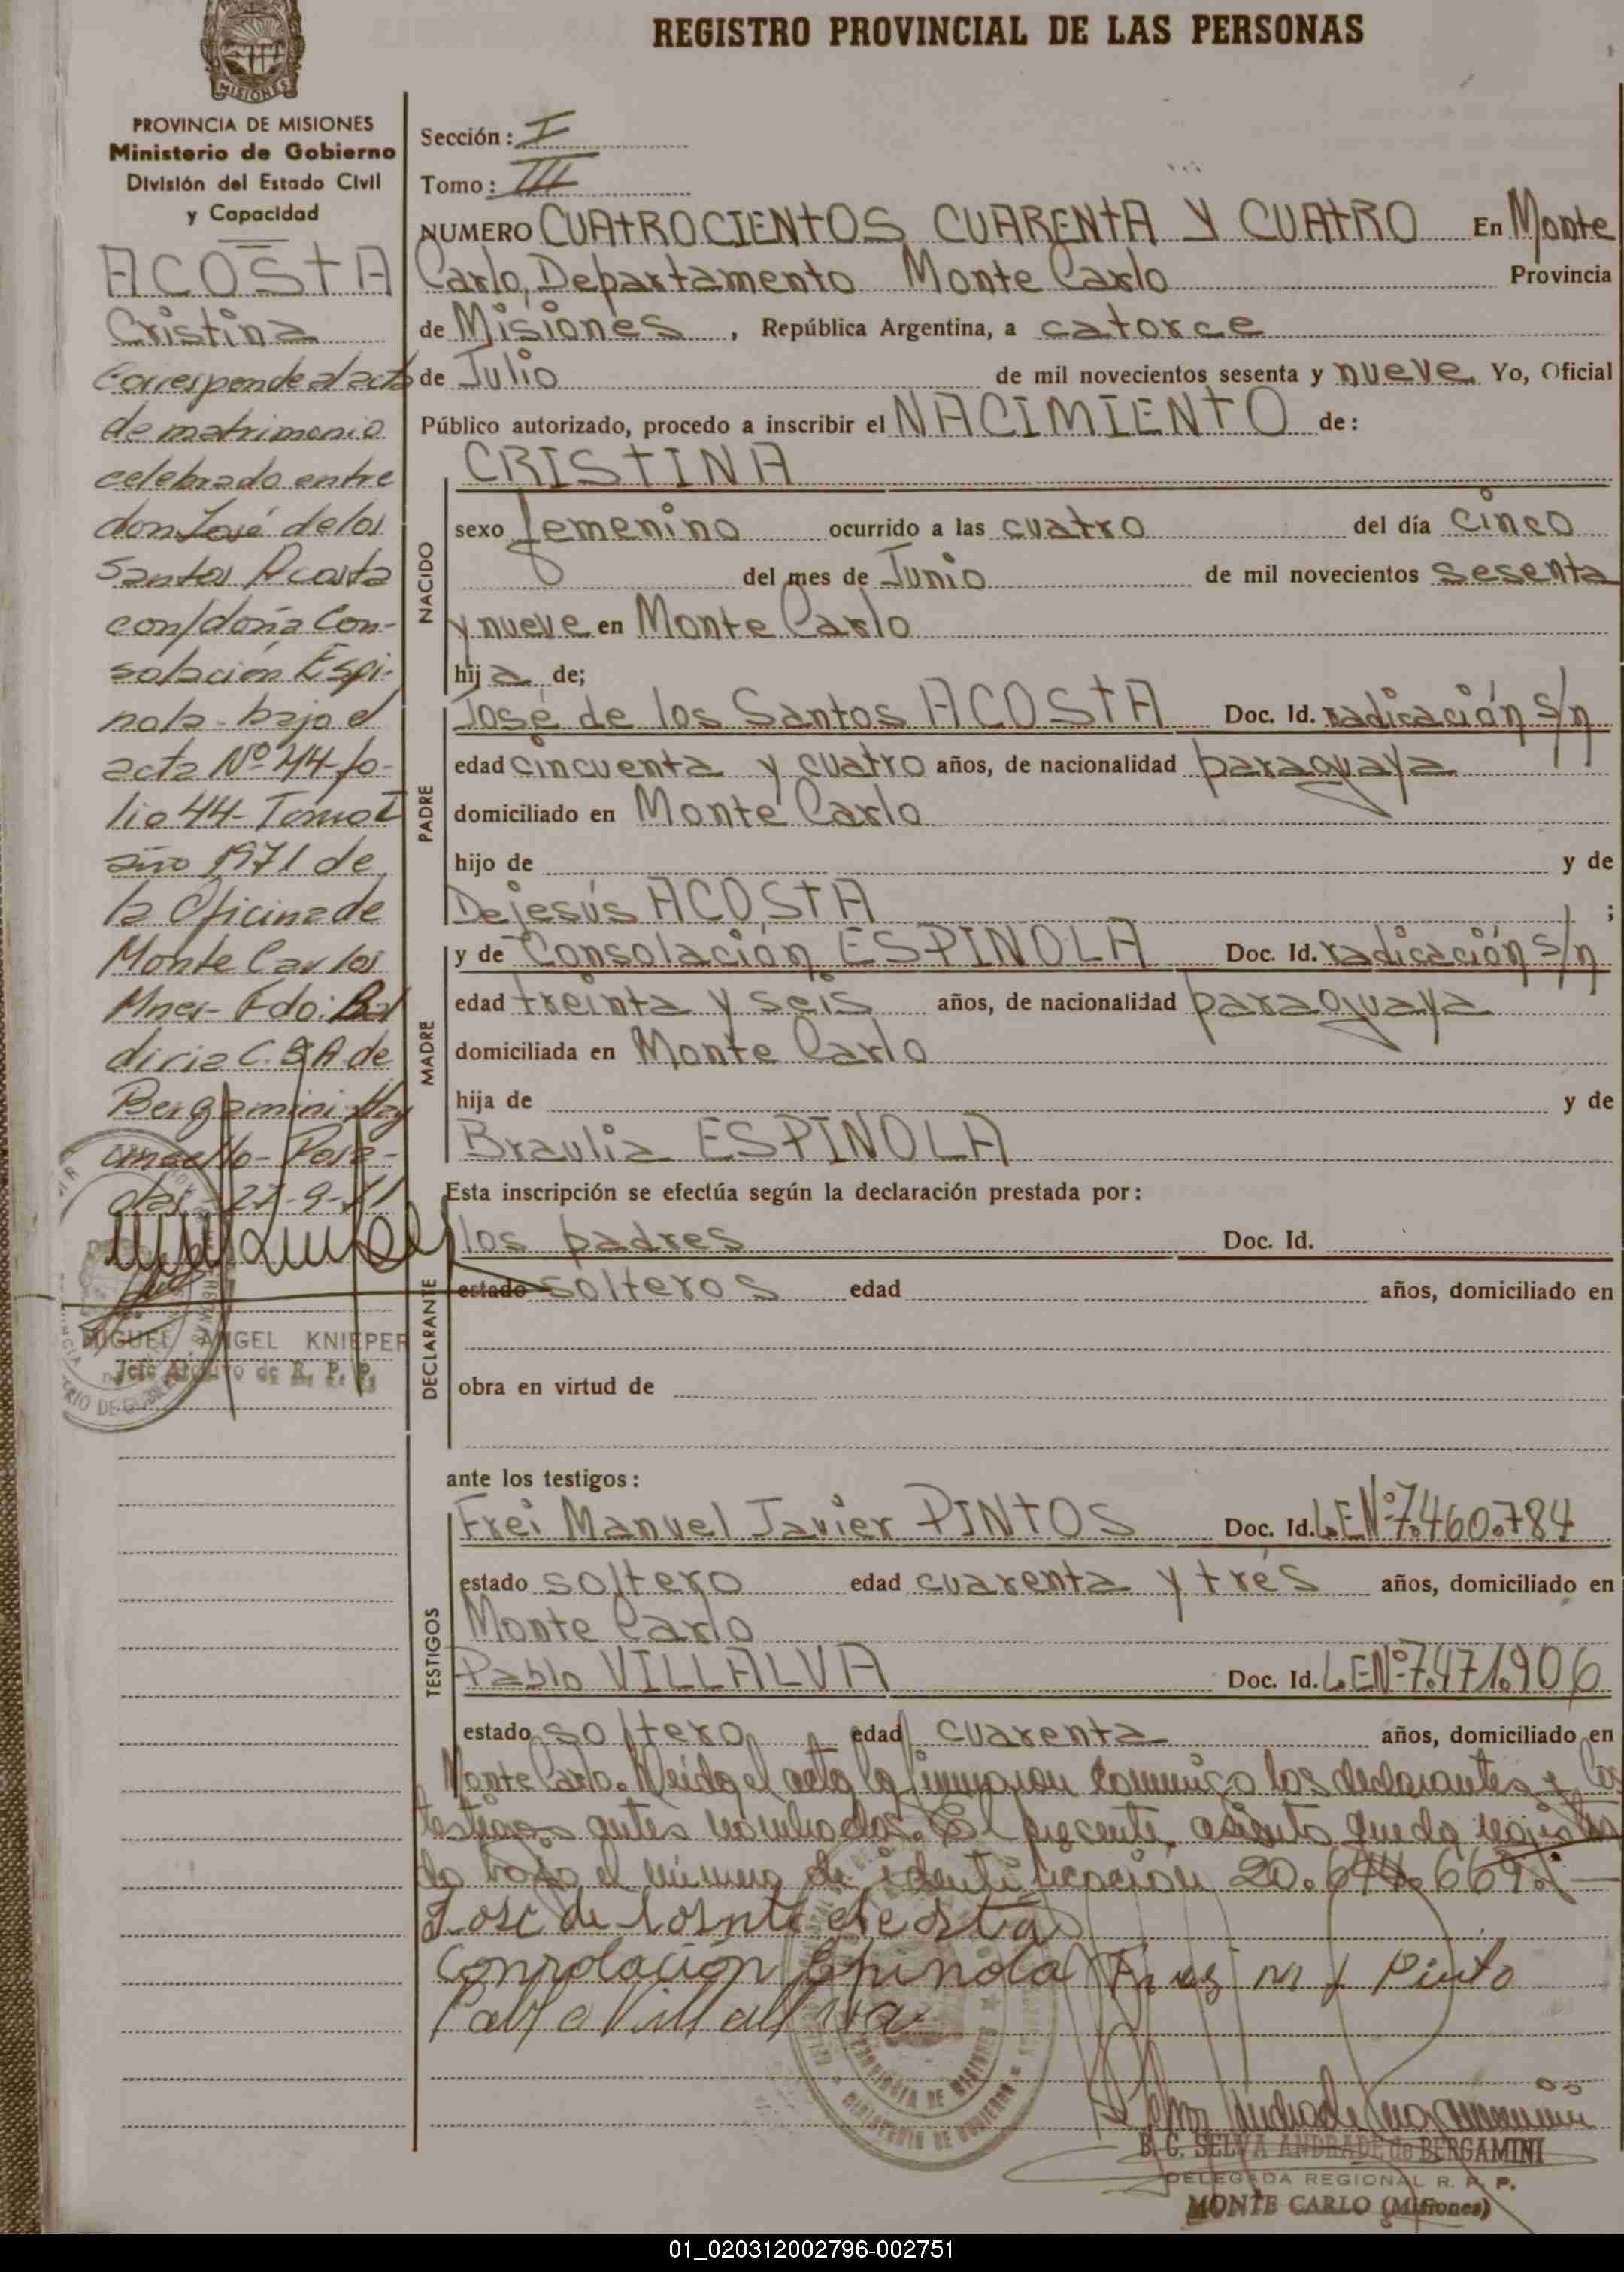 REGISTRO PROVINCIAL DE LAS PERSONAS
MISIONES
PROVINCIA DE MISIONES
Ministerio de Gobierno
División del Estado Civil
y Capacidad
ACOSTA
Cristina
Corresponde al acta
de matrimonio
celebrado entre
don José de los
Santos Acosta
con/doña Con-
solación Espi-
nola - bajo el
acta Nº 44 - fo-
lio 44 - Tomo I
año 1971 de
la Oficina de
Monte Carlos
Mnes - Fdo: Bal
diria C. S A de
Bergamini
Posa-
das - 27-9-71
MIGUEL ANGEL KNIEPER
Jefe Archivo de R. P. P.
Sección: I
Tomo: III
NUMERO CUATROCIENTOS CUARENTA Y CUATRO En Monte
Carlo, Departamento Monte Carlo Provincia
de Misiones, República Argentina, a catorce
de Julio de mil novecientos sesenta y nueve. Yo, Oficial
Público autorizado, procedo a inscribir el NACIMIENTO de:
NACIDO
CRISTINA
sexo femenino ocurrido a las cuatro del día cinco
del mes de Junio de mil novecientos sesenta
y nueve en Monte Carlo
hija de;
PADRE
José de los Santos ACOSTA Doc. Id. radicación s/n
edad cincuenta y cuatro años, de nacionalidad paraguaya
domiciliado en Monte Carlo
hijo de y de
Dejesús ACOSTA ;
MADRE
y de Consolación ESPINOLA Doc. Id. radicación s/n
edad treinta y seis años, de nacionalidad paraguaya
domiciliada en Monte Carlo
hija de y de
Braulia ESPINOLA
Esta inscripción se efectúa según la declaración prestada por:
DECLARANTE
los padres Doc. Id.
estado solteros edad años, domiciliado en
obra en virtud de
ante los testigos:
TESTIGOS
Frei Manuel Javier PINTOS Doc. Id. L.E.Nº 7.460.784
estado soltero edad cuarenta y trés años, domiciliado en
Monte Carlo
Pablo VILLALVA Doc. Id. L.E.Nº 7.471.906
estado soltero edad cuarenta años, domiciliado en
Monte Carlo. Leida el acta la firmaron conmigo los declarantes y los
testigos antes nombrados. El presente asiento queda registra
do bajo el número de identificación 20.644.669.-
José de
Consolación Espinola Frei M J Pinto
Pablo Villalva
PROVINCIA DE MISIONES
MINISTERIO DE GOBIERNO
B. C. SELVA ANDRADE de BERGAMINI
DELEGADA REGIONAL R. P. P.
MONTE CARLO (Misiones)
01_020312002796-002751